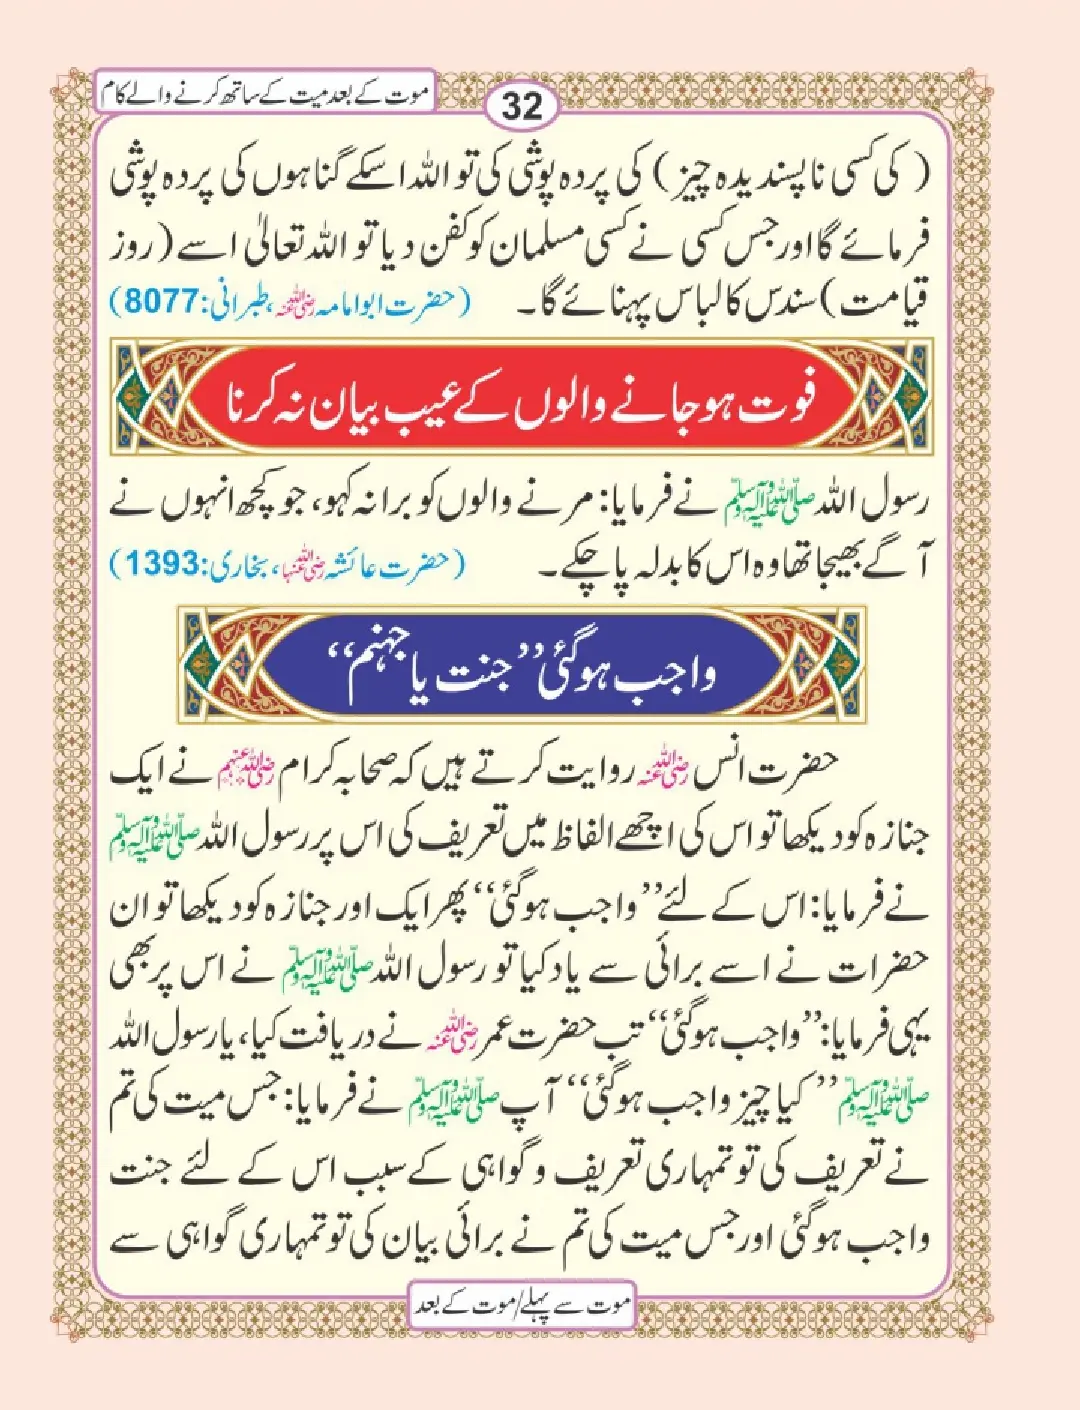 موت کے بعد میت کے ساتھ کرنے والے کام
32
( کی کسی ناپسندیدہ چیز ) کی پردہ پوشی کی تو اللہ اسکے گناہوں کی پردہ پوشی
فرمائے گا اور جس کسی نے کسی مسلمان کو کفن دیا تو اللہ تعالیٰ اسے ( روز
قیامت ) سندس کا لباس پہنائے گا۔ (حضرت ابوامامہ رضی اللہ عنہ، طبرانی: 8077)
فوت ہو جانے والوں کے عیب بیان نہ کرنا
رسول اللہ ﷺ نے فرمایا: مرنے والوں کو برا نہ کہو، جو کچھ انہوں نے
آگے بھیجا تھا وہ اس کا بدلہ پا چکے۔ (حضرت عائشہ رضی اللہ عنہا، بخاری: 1393)
واجب ہوگئی ’’جنت یا جہنم‘‘
حضرت انس رضی اللہ عنہ روایت کرتے ہیں کہ صحابہ کرام رضی اللہ عنہم نے ایک
جنازہ کو دیکھا تو اس کی اچھے الفاظ میں تعریف کی اس پر رسول اللہ ﷺ
نے فرمایا: اس کے لئے ’’واجب ہوگئی‘‘ پھر ایک اور جنازہ کو دیکھا تو ان
حضرات نے اسے برائی سے یاد کیا تو رسول اللہ ﷺ نے اس پر بھی
یہی فرمایا: ’’واجب ہوگئی‘‘ تب حضرت عمر رضی اللہ عنہ نے دریافت کیا، یا رسول اللہ
ﷺ ’’کیا چیز واجب ہوگئی‘‘ آپ ﷺ نے فرمایا: جس میت کی تم
نے تعریف کی تو تمہاری تعریف و گواہی کے سبب اس کے لئے جنت
واجب ہوگئی اور جس میت کی تم نے برائی بیان کی تو تمہاری گواہی سے
موت سے پہلے/موت کے بعد